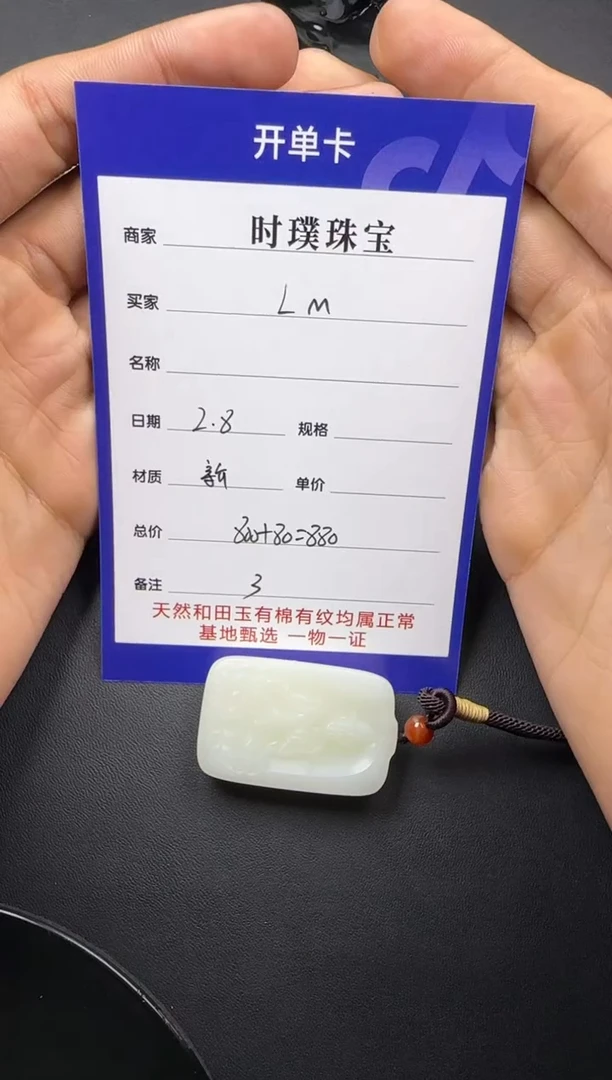 开单卡
商家 时璞珠宝
买家 L M
名称
日期 2.8 规格
材质 新 单价
总价 800+80=880
备注 3
天然和田玉有棉有纹均属正常
基地甄选 一物一证